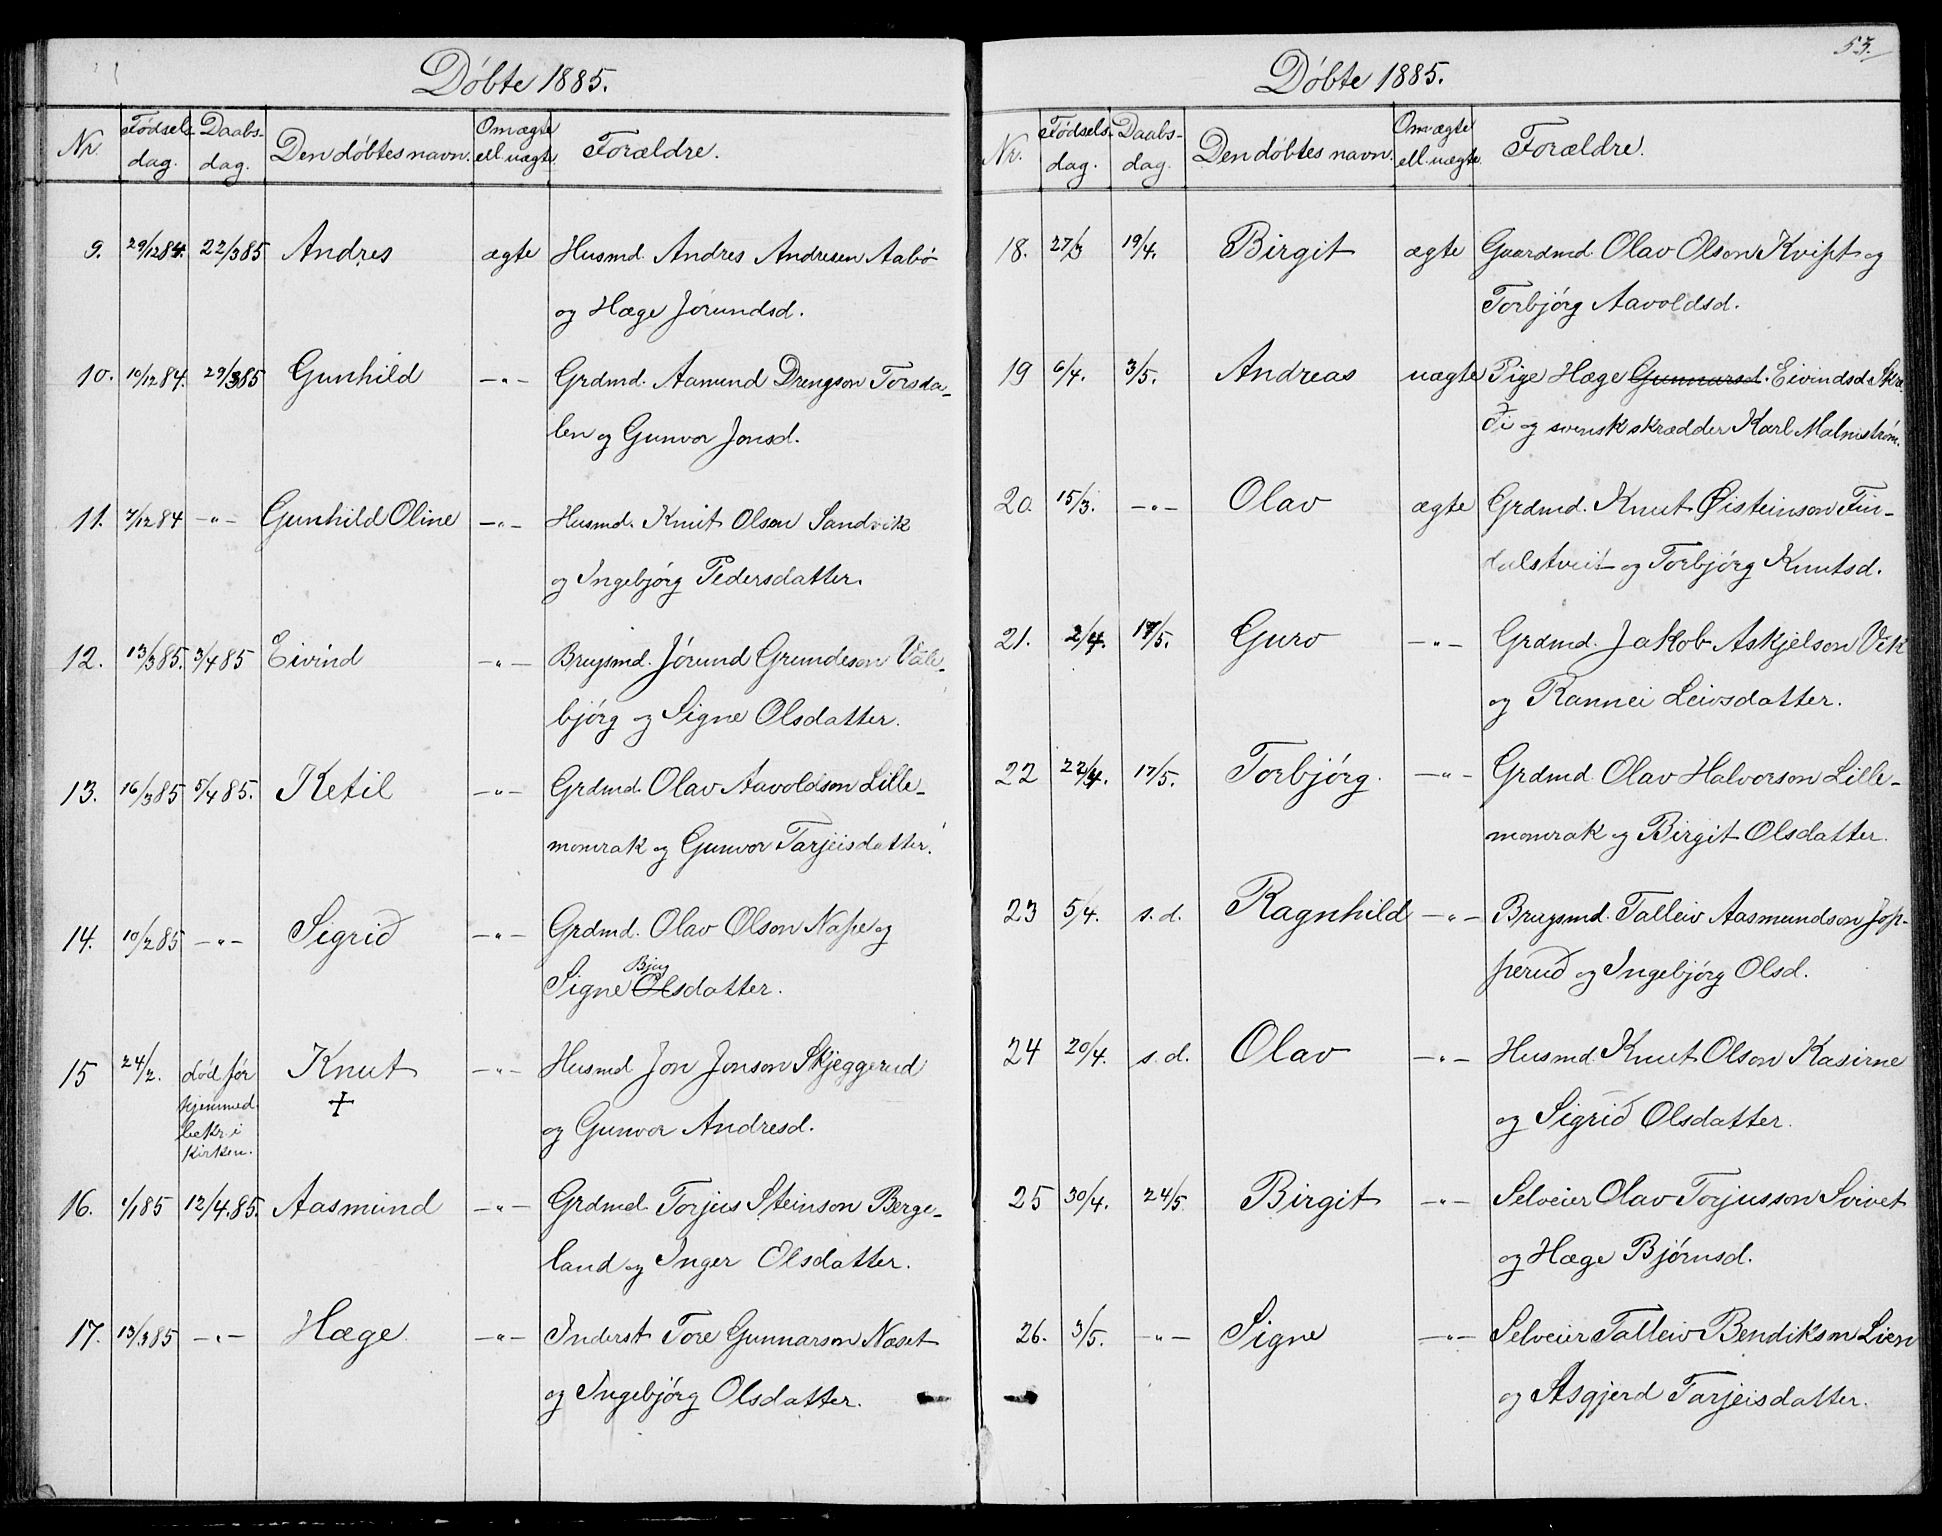 Døbte 1885.
Nr. Fødsels- dag. Daabs- dag. Den døbtes navn. Om ægte ell. uægte. Forældre.
9. 29/12 84. 22/3 85 Andres ægte Husmd. Andres Andresen Aabø
og Hæge Jørundsd.
10. 10/12 84. 29/3 85 Gunhild —"— Grdmd. Aamund Drengson Torsda-
len og Gunvor Jonsd.
11. 7/12 84 —"— Gunhild Oline —"— Husmd. Knut Olson Sandvik
og Ingebjørg Pedersdatter.
12. 13/3 85. 3/4 85 Eivind —"— Brugsmd. Jørund Grundeson Vale-
bjørg og Signe Olsdatter.
13. 16/3 85 5/4 85. Ketil —"— Grdmd. Olav Aavoldson Lille-
momrak og Gunvor Tarjeisdatter.
14. 10/2 85 —"— Sigrid —"— Grdmd. Olav Olson Nape og
Bjug
Signe Olsdatter.
15 24/2. død før Knut —"— Husmd Jon Jonson Skjeggerud
hjemmed. +
bekr. i og Gunvor Andresd.
kirken.
16. 1/1 85 12/4 85. Aasmund —"— Grdmd. Torjus Steinson Berge-
land og Inger Olsdatter.
17. 13/3 85 —"— Hæge —"— Inderst Tore Gunnarson Næset
og Ingebjørg Olsdatter.
53.
Døbte 1885.
Nr. Fødsels- dag. Daabs- dag. Den døbtes navn. Om ægte ell. uægte. Forældre.
18. 27/3 19/4. Birgit ægte Gaardmd. Olav Olson Kvipt og
Torbjørg Aavoldsd.
19 6/4. 3/5. Andreas uægte Pige Hæge Gunnarsd. Eivindsd. Skre-
di og svensk skrædder Karl Malmstrøm.
20. 15/3. —"— Olav ægte Grdmd. Knut Øisteinson Fin-
dalstveit og Torbjørg Knutsd.
21. 2/4. 17/5. Guro —"— Grdmd. Jakob Askjelson Vik
og Rannei Leivsdatter.
22 22/4. 17/5. Torbjørg. —"— Grdmd. Olav Halvorson Lille-
momrak og Birgit Olsdatter.
23 5/4. s. d. Ragnhild —"— Brugsmd. Talleiv Aasmundson Jop-
perud og Ingebjørg Olsd.
24 20/4. s. d. Olav —"— Husmd. Knut Olson Kasirne
og Sigrid Olsdatter.
25 30/4. 24/5 Birgit —"— Selveier Olav Torjusson Svivet
og Hæge Bjørnsd.
26. 3/5. —"— Signe —"— Selveier Talleiv Bendikson Lien
og Asgjerd Tarjeisdatter.